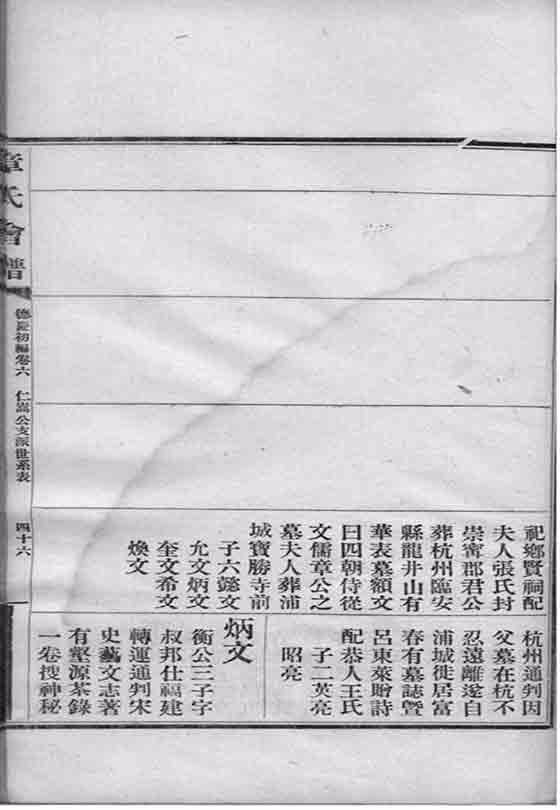 祀鄉賢祠配
夫人張氏封
崇寧郡君公
葬杭州臨安
縣龍井山有
華表墓額文
曰四朝侍從
文儒章公之
墓夫人葬浦
城寶勝寺前
子六懿文
允文炳文
奎文希文
煥文
杭州通判因
父墓在杭不
忍遠離遂自
浦城徙居富
春有墓誌曁
呂東萊贈詩
配恭人王氏
子二英亮
昭亮
炳文
衡公三子字
叔邦仕福建
轉運通判宋
史藝文志著
有壑源茶錄
一卷搜神秘
章氏會譜
德慶初編卷六 仁嵩公支派世系表 四十六